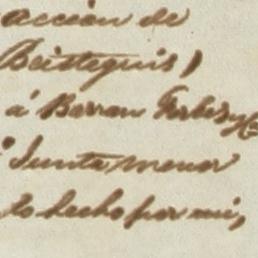 accion de
Beistegui,)
á Barron Forbes y Cª
Junta menor
to hecho por mi,